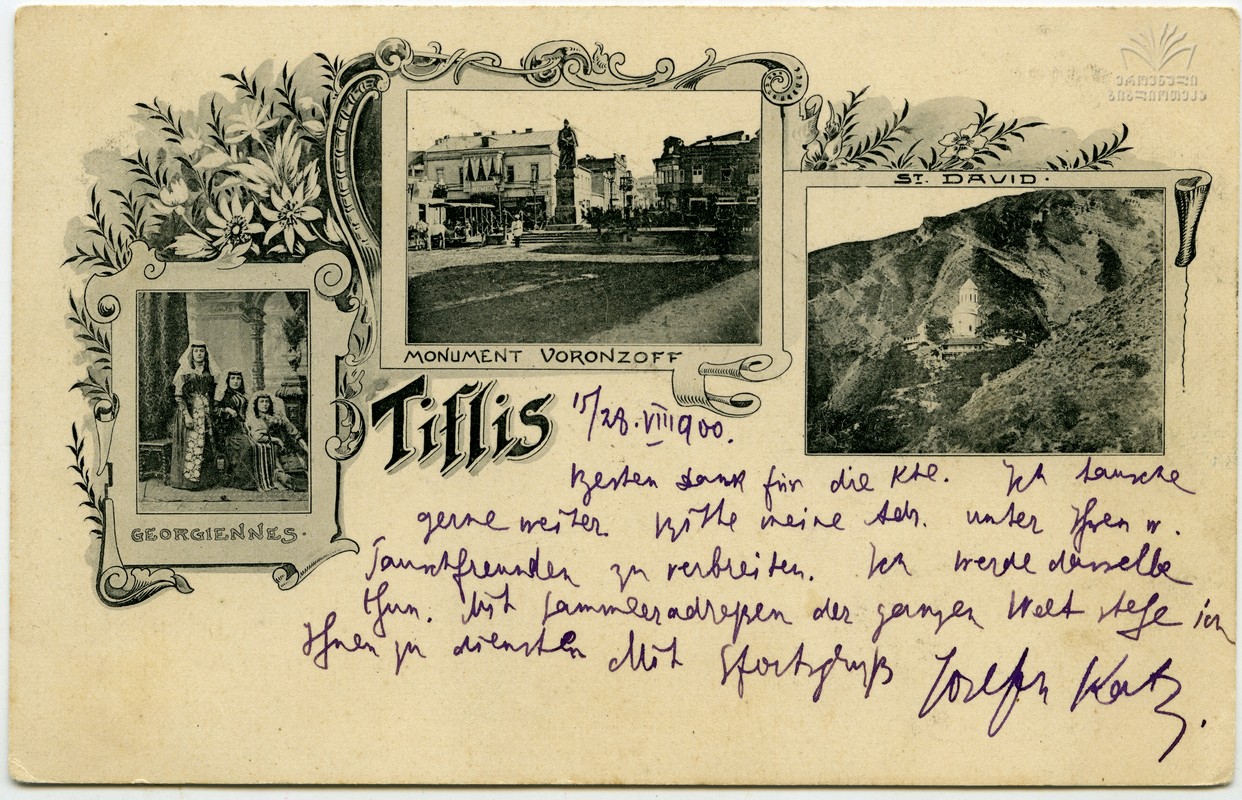 ეროვნული
ბიბლიოთეკა
ST. DAVID.
MONUMENT VORONZOFF
GEORGIENNES.
Tiflis
15/28.VIII900.
Besten Dank für die Kte. Ich tausche
gerne weiter. Bitte meine Adr. unter Ihren w.
Tauschfreunden zu verbreiten. Ich werde dasselbe
thun. Mit Sammleradreßen der ganzen Welt stehe ich
Ihnen zu diensten Mit Sportsgruß Josef Katz.